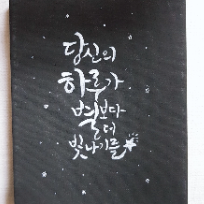 당신의
하루가
별보다
더
빛나기를